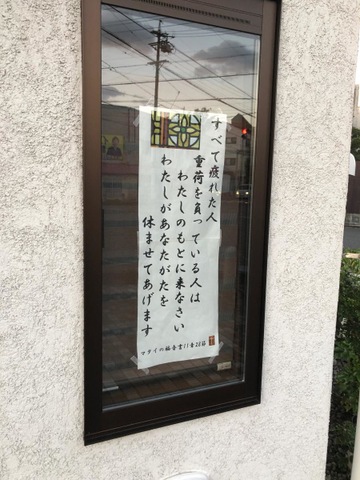 すべて疲れた人
重荷を負っている人は
わたしのもとに来なさい
わたしがあなたがたを
休ませてあげます
マタイの福音書11章28節